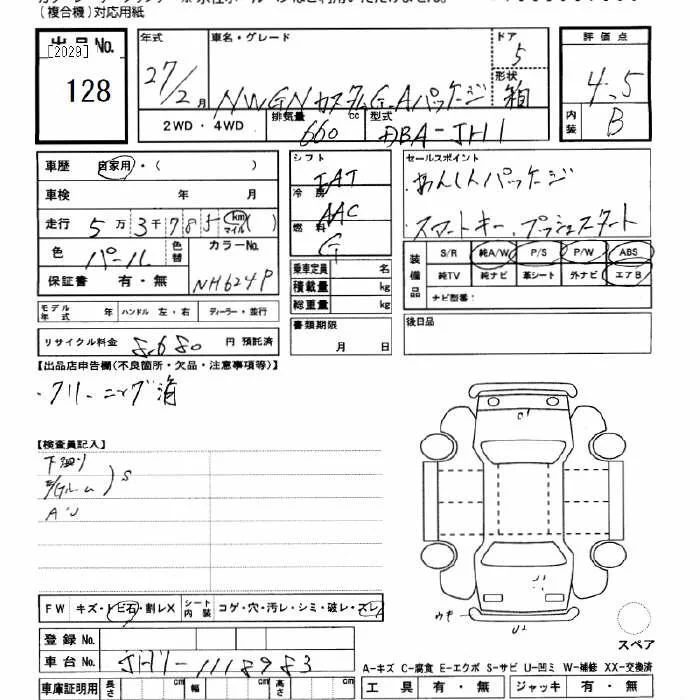 (複合機)対応用紙
出品No.
[2029]
128
年式
27/2 月
車名・グレード
NWGNカスタムG.Aパッケージ
ドア
5
形状
箱
評価点
4.5
内装
B
2WD・4WD
排気量
660 cc
型式
DBA-JH1
車歴 自家用・( )
車検 年 月
走行 5万3千785 km マイル ( )
色 パール 色替 カラーNo. NH624P
保証書 有・無
シフト
IAT
冷房
AAC
燃料
G
乗車定員 名
積載量 kg
総重量 kg
書類期限
月 日
セールスポイント
あんしんパッケージ
スマートキー、プッシュスタート
装備品
S/R 純A/W P/S P/W ABS
純TV 純ナビ 革シート 外ナビ エアB
ナビ型番:
後日品
モデル年式 年 ハンドル 左・右 ディーラー・並行
リサイクル料金 8,680 円 預託済
【出品店申告欄(不良箇所・欠品・注意事項等)】
・クリーニング済
【検査員記入】
下廻り
S
AU
FW キズ・トビ石・割レX シート内装 コゲ・穴・汚レ・シミ・破レ・スレ
登録No.
車台No. JH1-1118983
車庫証明用 長さ cm 幅 cm 高さ cm
ウキ
U2
スペア
A-キズ C-腐食 E-エクボ S-サビ U-凹ミ W-補修 XX-交換済
工具 有・無 ジャッキ 有・無